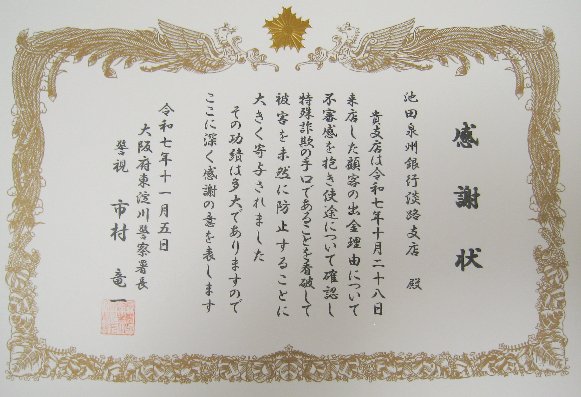 感謝状
池田泉州銀行淡路支店 殿
貴支店は令和七年十月二十八日
来店した顧客の出金理由について
不審感を抱き使途について確認し
特殊詐欺の手口であることを看破して
被害を未然に防止することに
大きく寄与されました
その功績は多大でありますので
ここに深く感謝の意を表します
令和七年十一月五日
大阪府東淀川警察署長
警視 市村 竜一